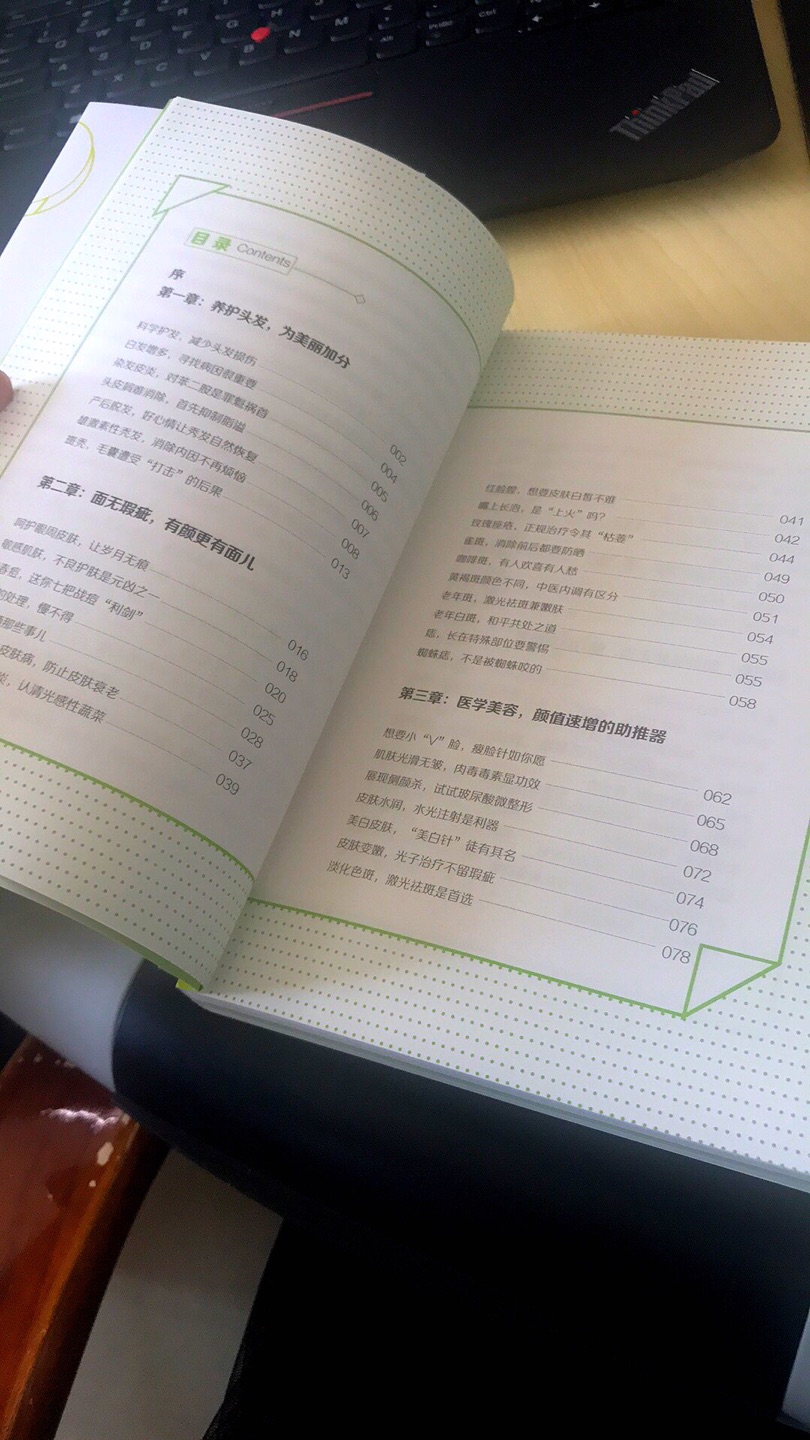 ThinkPad
目录 Contents
序
第一章：养护头发，为美丽加分
科学护发，减少头发损伤 002
白发增多，寻找病因很重要 004
染发皮炎，对苯二胺是罪魁祸首 005
头皮屑难消除，首先抑制脂溢 006
产后脱发，好心情让秀发自然恢复 007
雄激素性秃发，消除内因不再烦恼 008
斑秃，毛囊遭受“打击”的后果 013
第二章：面无瑕疵，有颜更有面儿
呵护眼周皮肤，让岁月无痕 016
敏感肌肤，不良护肤是元凶之一 018
春痘，送你七把战痘“利剑” 020
的处理，慢不得 025
那些事儿 028
皮肤病，防止皮肤衰老 037
炎，认清光感性蔬菜 039
红脸膛，想要皮肤白皙不难 041
嘴上长泡，是“上火”吗？ 042
玫瑰痤疮，正规治疗令其“枯萎” 044
雀斑，消除前后都要防晒 049
咖啡斑，有人欢喜有人愁 050
黄褐斑颜色不同，中医内调有区分 051
老年斑，激光祛斑兼嫩肤 054
老年白斑，和平共处之道 055
痣，长在特殊部位要警惕 055
蜘蛛痣，不是被蜘蛛咬的 058
第三章：医学美容，颜值速增的助推器
想要小“V”脸，瘦脸针如你愿 062
肌肤光滑无皱，肉毒毒素显功效 065
展现侧颜杀，试试玻尿酸微整形 068
皮肤水润，水光注射是利器 072
美白皮肤，“美白针”徒有其名 074
皮肤变嫩，光子治疗不留瑕疵 076
淡化色斑，激光祛斑是首选 078